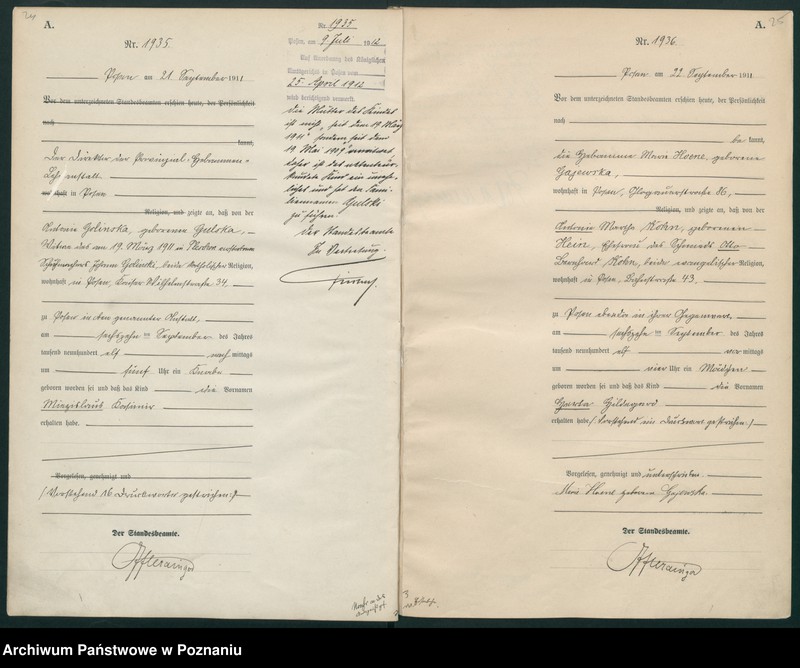 24
A.
Nr. 1935.
Posen am 21. September 1911
Vor dem unterzeichneten Standesbeamten erschien heute, der Persönlichkeit
nach
kannt,
Der Direktor der Provinzial-Hebammen-
Lehranstalt
wohnhaft in Posen
Religion, und zeigte an, daß von der
Antonie Golinska, geborenen Gulska,
Witwe des am 19. März 1911 in verstorbenen
Johann Golinski, beide katholischer Religion,
wohnhaft in Posen, Wilhelmstraße 34
zu Posen in der genannten Anstalt,
am sechszehnten September des Jahres
tausend neunhundert elf nachmittags
um fünf Uhr ein Knabe
geboren worden sei und daß das Kind die Vornamen
Miezislaus Kasimir
erhalten habe.
Vorgelesen, genehmigt und
(Vorstehend 16 Druckworte gestrichen.)
Der Standesbeamte.
Nr. 1935
Posen, am 9. Juli 1912
Auf Anordnung des Königlichen
Amtsgerichts in Posen vom
25. April 1912
wird berichtigend vermerkt:
Die Mutter des Kindes
ist nicht „seit dem 19. März
1911" sondern seit dem
19. Mai 1909 verwitwet,
daher ist das nebenbeur-
kundete Kind ein unehe-
liches und hat den Fami-
liennamen Gulski
zu führen.
Der Standesbeamte
In Vertretung.
25
A.
Nr. 1936.
Posen am 22. September 1911
Vor dem unterzeichneten Standesbeamten erschien heute, der Persönlichkeit
nach
be kannt,
die Hebamme Marie Hoene geborene
Gajewska,
wohnhaft in Posen, Glogauerstraße 86,
Religion, und zeigte an, daß von der
Antonie Martha Kohn, geborenen
Hein, Ehefrau des Schmieds Otto
Bernhard Kohn, beide evangelischer Religion,
wohnhaft in Posen, 43,
zu Posen ebenda in ihrer Gegenwart,
am sechszehnten September des Jahres
tausend neunhundert elf vormittags
um vier Uhr ein Mädchen
geboren worden sei und daß das Kind die Vornamen
Herta Hildegard
erhalten habe. (Vorstehend ein Druckwort gestrichen.)
Vorgelesen, genehmigt und unterschrieben.
Marie Hoene geborene Gajewska.
Der Standesbeamte.
Archiwum Państwowe w Poznaniu